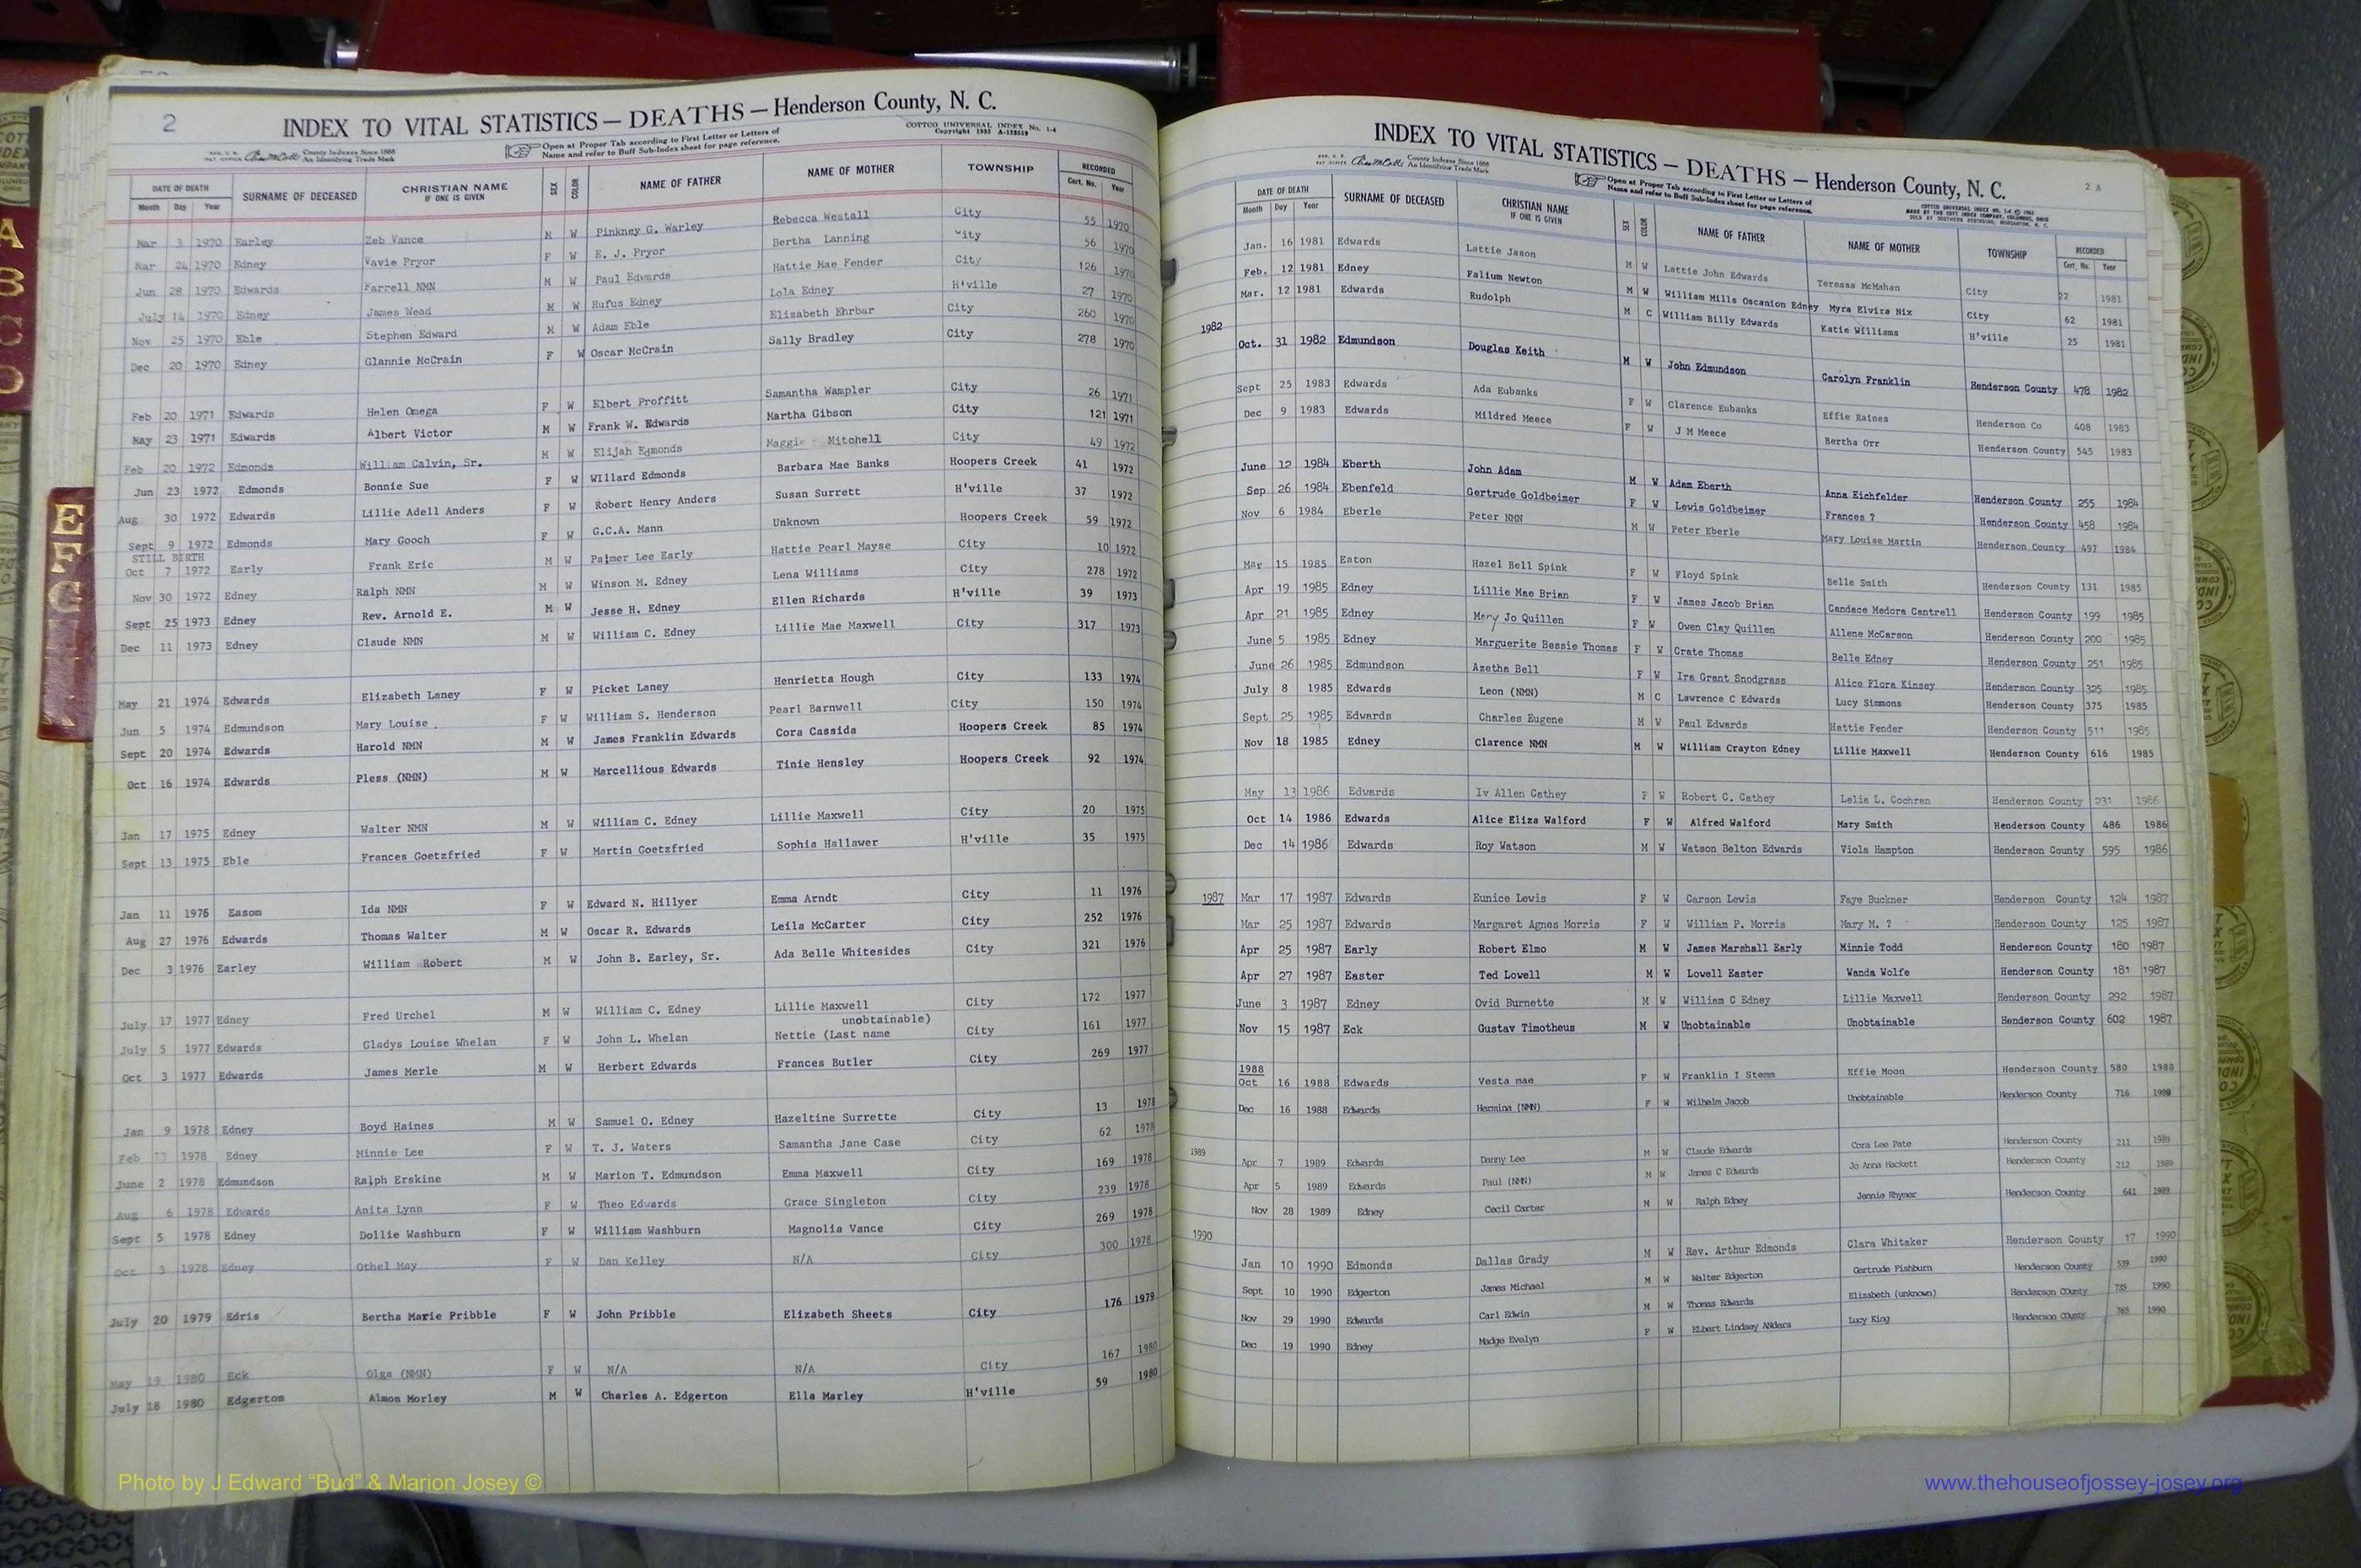 2
INDEX TO VITAL STATISTICS — DEATHS — Henderson County, N. C.
COTTCO UNIVERSAL INDEX No. 1-4
Copyright 1953 A-123859
County Indexes Since 1888
An Identifying Trade Mark
Open at Proper Tab according to First Letter or Letters of
Name and refer to Buff Sub-Index sheet for page reference.
DATE OF DEATH SURNAME OF DECEASED CHRISTIAN NAME IF ONE IS GIVEN SEX COLOR NAME OF FATHER NAME OF MOTHER TOWNSHIP RECORDED
Month Day Year Cert. No. Year
Mar 3 1970 Earley Zeb Vance M W Pinkney G. Warley Rebecca Westall City 55 1970
Mar 24 1970 Edney Vavie Pryor F W E. J. Pryor Bertha Lanning City 56 1970
Jun 28 1970 Edwards Farrell NMN M W Paul Edwards Hattie Mae Fender City 126 1970
July 14 1970 Edney James Wead M W Rufus Edney Lola Edney H'ville 27 1970
Nov 25 1970 Eble Stephen Edward M W Adam Eble Elizabeth Ehrbar City 260 1970
Dec 20 1970 Edney Glannie McCrain F W Oscar McCrain Sally Bradley City 278 1970
Feb 20 1971 Edwards Helen Omega F W Elbert Proffitt Samantha Wampler City 26 1971
May 23 1971 Edwards Albert Victor M W Frank W. Edwards Martha Gibson City 121 1971
Feb 20 1972 Edmonds William Calvin, Sr. M W Elijah Edmonds Maggie Mitchell City 49 1972
Jun 23 1972 Edmonds Bonnie Sue F W WIllard Edmonds Barbara Mae Banks Hoopers Creek 41 1972
Aug 30 1972 Edwards Lillie Adell Anders F W Robert Henry Anders Susan Surrett H'ville 37 1972
Sept 9 1972 Edmonds Mary Gooch F W G.C.A. Mann Unknown Hoopers Creek 59 1972
STILL BIRTH
Oct 7 1972 Early Frank Eric M W Palmer Lee Early Hattie Pearl Mayse City 10 1972
Nov 30 1972 Edney Ralph NMN M W Winson M. Edney Lena Williams City 278 1972
Sept 25 1973 Edney Rev. Arnold E. M W Jesse H. Edney Ellen Richards H'ville 39 1973
Dec 11 1973 Edney Claude NMN M W William C. Edney Lillie Mae Maxwell City 317 1973
May 21 1974 Edwards Elizabeth Laney F W Picket Laney Henrietta Hough City 133 1974
Jun 5 1974 Edmundson Mary Louise F W William S. Henderson Pearl Barnwell City 150 1974
Sept 20 1974 Edwards Harold NMN M W James Franklin Edwards Cora Cassida Hoopers Creek 85 1974
Oct 16 1974 Edwards Pless (NMN) M W Marcellious Edwards Tinie Hensley Hoopers Creek 92 1974
Jan 17 1975 Edney Walter NMN M W William C. Edney Lillie Maxwell City 20 1975
Sept 13 1975 Eble Frances Goetzfried F W Martin Goetzfried Sophia Hallawer H'ville 35 1975
Jan 11 1976 Easom Ida NMN F W Edward N. Hillyer Emma Arndt City 11 1976
Aug 27 1976 Edwards Thomas Walter M W Oscar R. Edwards Leila McCarter City 252 1976
Dec 3 1976 Earley William Robert M W John B. Earley, Sr. Ada Belle Whitesides City 321 1976
July 17 1977 Edney Fred Urchel M W William C. Edney Lillie Maxwell City 172 1977
unobtainable)
July 5 1977 Edwards Gladys Louise Whelan F W John L. Whelan Nettie (Last name City 161 1977
Oct 3 1977 Edwards James Merle M W Herbert Edwards Frances Butler City 269 1977
Jan 9 1978 Edney Boyd Haines M W Samuel O. Edney Hazeltine Surrette City 13 1978
Feb 1978 Edney Minnie Lee F W T. J. Waters Samantha Jane Case City 62 1978
June 2 1978 Edmundson Ralph Erskine M W Marion T. Edmundson Emma Maxwell City 169 1978
Aug 6 1978 Edwards Anita Lynn F W Theo Edwards Grace Singleton City 239 1978
Sept 5 1978 Edney Dollie Washburn F W William Washburn Magnolia Vance City 269 1978
Oct 3 1978 Edney Othel May F W Dan Kelley N/A City 300 1978
July 20 1979 Edris Bertha Marie Pribble F W John Pribble Elizabeth Sheets City 176 1979
May 19 1980 Eck Olga (NMN) F W N/A N/A City 167 1980
July 18 1980 Edgerton Almon Morley M W Charles A. Edgerton Ella Marley H'ville 59 1980
INDEX TO VITAL STATISTICS — DEATHS — Henderson County, N. C.
2 A
County Indexes Since 1888
An Identifying Trade Mark
Open at Proper Tab according to First Letter or Letters of
Name and refer to Buff Sub-Index sheet for page reference.
DATE OF DEATH SURNAME OF DECEASED CHRISTIAN NAME IF ONE IS GIVEN SEX COLOR NAME OF FATHER NAME OF MOTHER TOWNSHIP RECORDED
Month Day Year Cert. No. Year
Jan. 16 1981 Edwards Lattie Jason M W Lattie John Edwards Teressa McMahan City 22 1981
Feb. 12 1981 Edney Falium Newton M W William Mills Oscanion Edney Myra Elvira Nix City 62 1981
Mar. 12 1981 Edwards Rudolph M C William Billy Edwards Katie Williams H'ville 25 1981
1982
Oct. 31 1982 Edmundson Douglas Keith M W John Edmundson Carolyn Franklin Henderson County 478 1982
Sept 25 1983 Edwards Ada Eubanks F W Clarence Eubanks Effie Raines Henderson Co 408 1983
Dec 9 1983 Edwards Mildred Meece F W J M Meece Bertha Orr Henderson County 545 1983
June 12 1984 Eberth John Adam M W Adam Eberth Anna Eichfelder Henderson County 255 1984
Sep 26 1984 Ebenfeld Gertrude Goldbeimer F W Lewis Goldbeimer Frances ? Henderson County 458 1984
Nov 6 1984 Eberle Peter NMN M W Peter Eberle Mary Louise Martin Henderson County 497 1984
Mar 15 1985 Eaton Hazel Bell Spink F W Floyd Spink Belle Smith Henderson County 131 1985
Apr 19 1985 Edney Lillie Mae Brian F W James Jacob Brian Candace Medora Cantrell Henderson County 199 1985
Apr 21 1985 Edney Mary Jo Quillen F W Owen Clay Quillen Allene McCarson Henderson County 200 1985
June 5 1985 Edney Marguerite Bessie Thomas F W Crate Thomas Belle Edney Henderson County 251 1985
June 26 1985 Edmundson Azetha Bell F W Ira Grant Snodgrass Alice Flora Kinsey Henderson County 325 1985
July 8 1985 Edwards Leon (NMN) M C Lawrence C Edwards Lucy Simmons Henderson County 375 1985
Sept 25 1985 Edwards Charles Eugene M W Paul Edwards Hattie Fender Henderson County 511 1985
Nov 18 1985 Edney Clarence NMN M W William Crayton Edney Lillie Maxwell Henderson County 616 1985
May 13 1986 Edwards Iv Allen Cathey F W Robert C. Cathey Lelia L. Cochran Henderson County 231 1986
Oct 14 1986 Edwards Alice Eliza Walford F W Alfred Walford Mary Smith Henderson County 486 1986
Dec 14 1986 Edwards Roy Watson M W Watson Belton Edwards Viola Hampton Henderson County 595 1986
1987 Mar 17 1987 Edwards Eunice Lewis F W Carson Lewis Faye Buckner Henderson County 124 1987
Mar 25 1987 Edwards Margaret Agnes Morris F W William P. Morris Mary M. ? Henderson County 125 1987
Apr 25 1987 Early Robert Elmo M W James Marshall Early Minnie Todd Henderson County 180 1987
Apr 27 1987 Easter Ted Lowell M W Lowell Easter Wanda Wolfe Henderson County 181 1987
June 3 1987 Edney Ovid Burnette M W William C Edney Lillie Maxwell Henderson County 292 1987
Nov 15 1987 Eck Gustav Timotheus M W Unobtainable Unobtainable Henderson County 602 1987
1988
Oct 16 1988 Edwards Vesta mae F W Franklin I Stemm Effie Moon Henderson County 580 1988
Dec 16 1988 Edwards Hermina (NMN) F W Wilhelm Jacob Unobtainable Henderson County 716 1988
1989
Apr 7 1989 Edwards Danny Lee M W Claude Edwards Cora Lee Pate Henderson County 211 1989
Apr 5 1989 Edwards Paul (NMN) M W James C Edwards Jo Anna Hackett Henderson County 212 1989
Nov 28 1989 Edney Cecil Carter M W Ralph Edney Jennie Rhymer Henderson County 641 1989
1990
Jan 10 1990 Edmonds Dallas Grady M W Rev. Arthur Edmonds Clara Whitaker Henderson County 17 1990
Sept 10 1990 Edgerton James Michael M W Walter Edgerton Gertrude Fishburn Henderson County 539 1990
Nov 29 1990 Edwards Carl Edwin M W Thomas Edwards Elizabeth (unknown) Henderson COunty 735 1990
Dec 19 1990 Edney Madge Evelyn F W ELbert Lindsey ANders Lucy King Henderson COunty 765 1990
A
B
C
D
E
F
G
Photo by J Edward “Bud” & Marion Josey ©
www.thehouseofjossey-josey.org